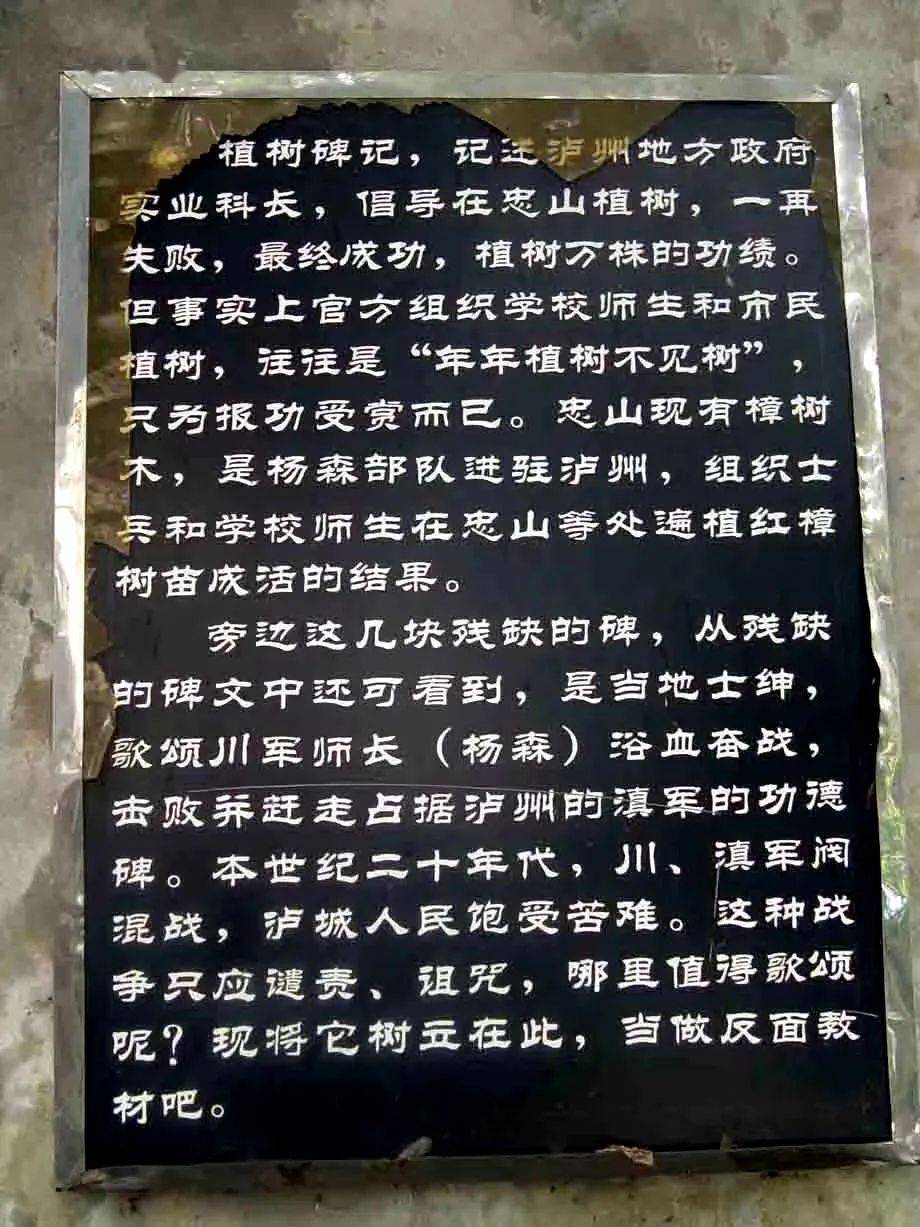 植树碑记，记述泸州地方政府
实业科长，倡导在忠山植树，一再
失败，最终成功，植树万株的功绩。
但事实上官方组织学校师生和市民
植树，往往是“年年植树不见树”，
只为报功受赏而已。忠山现有樟树
木，是杨森部队进驻泸州，组织士
兵和学校师生在忠山等处遍植红樟
树苗成活的结果。
旁边这几块残缺的碑，从残缺
的碑文中还可看到，是当地士绅，
歌颂川军师长（杨森）浴血奋战，
击败并赶走占据泸州的滇军的功德
碑。本世纪二十年代，川、滇军阀
混战，泸城人民饱受苦难。这种战
争只应谴责、诅咒，哪里值得歌颂
呢？现将它树立在此，当做反面教
材吧。